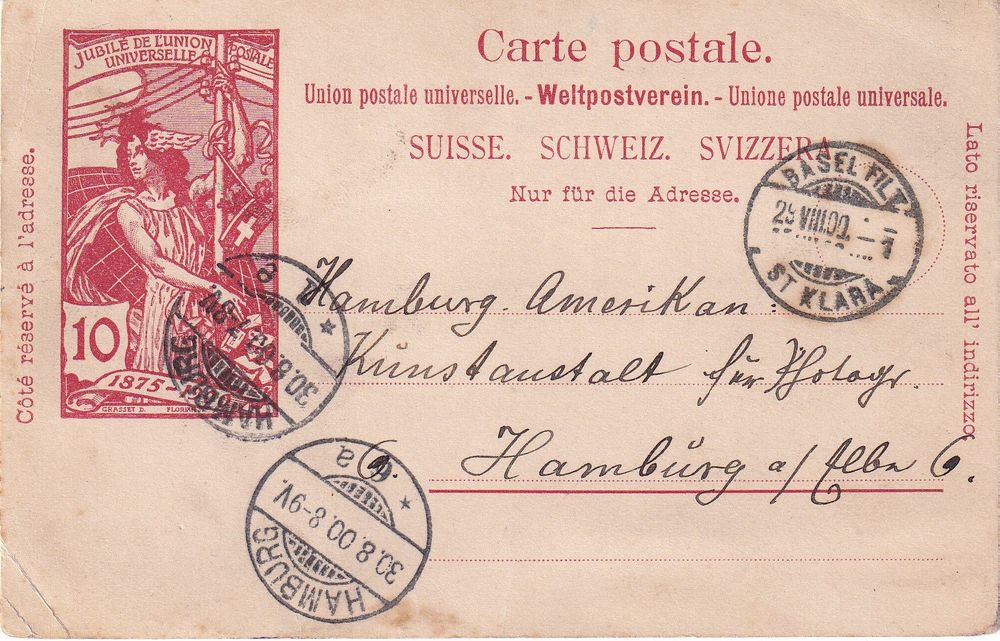 JUBILÉ DE L'UNION
UNIVERSELLE POSTALE
10
1875-
GRASSET D. FLORIAN
Carte postale.
Union postale universelle. - Weltpostverein. - Unione postale universale.
SUISSE. SCHWEIZ. SVIZZERA
Nur für die Adresse.
Côté réservé à l'adresse.
Lato riservato all' indirizzo
BASEL FIL.
29.VIII.00. - 1
ST KLARA
Hamburg. Amerikan:
Kunstanstalt für Photogr.
Hamburg a/ Elbe 6.
6.
HAMBURG
30.8.00. 7-8V.
a
HAMBURG
30.8.00.8-9V.
6 a